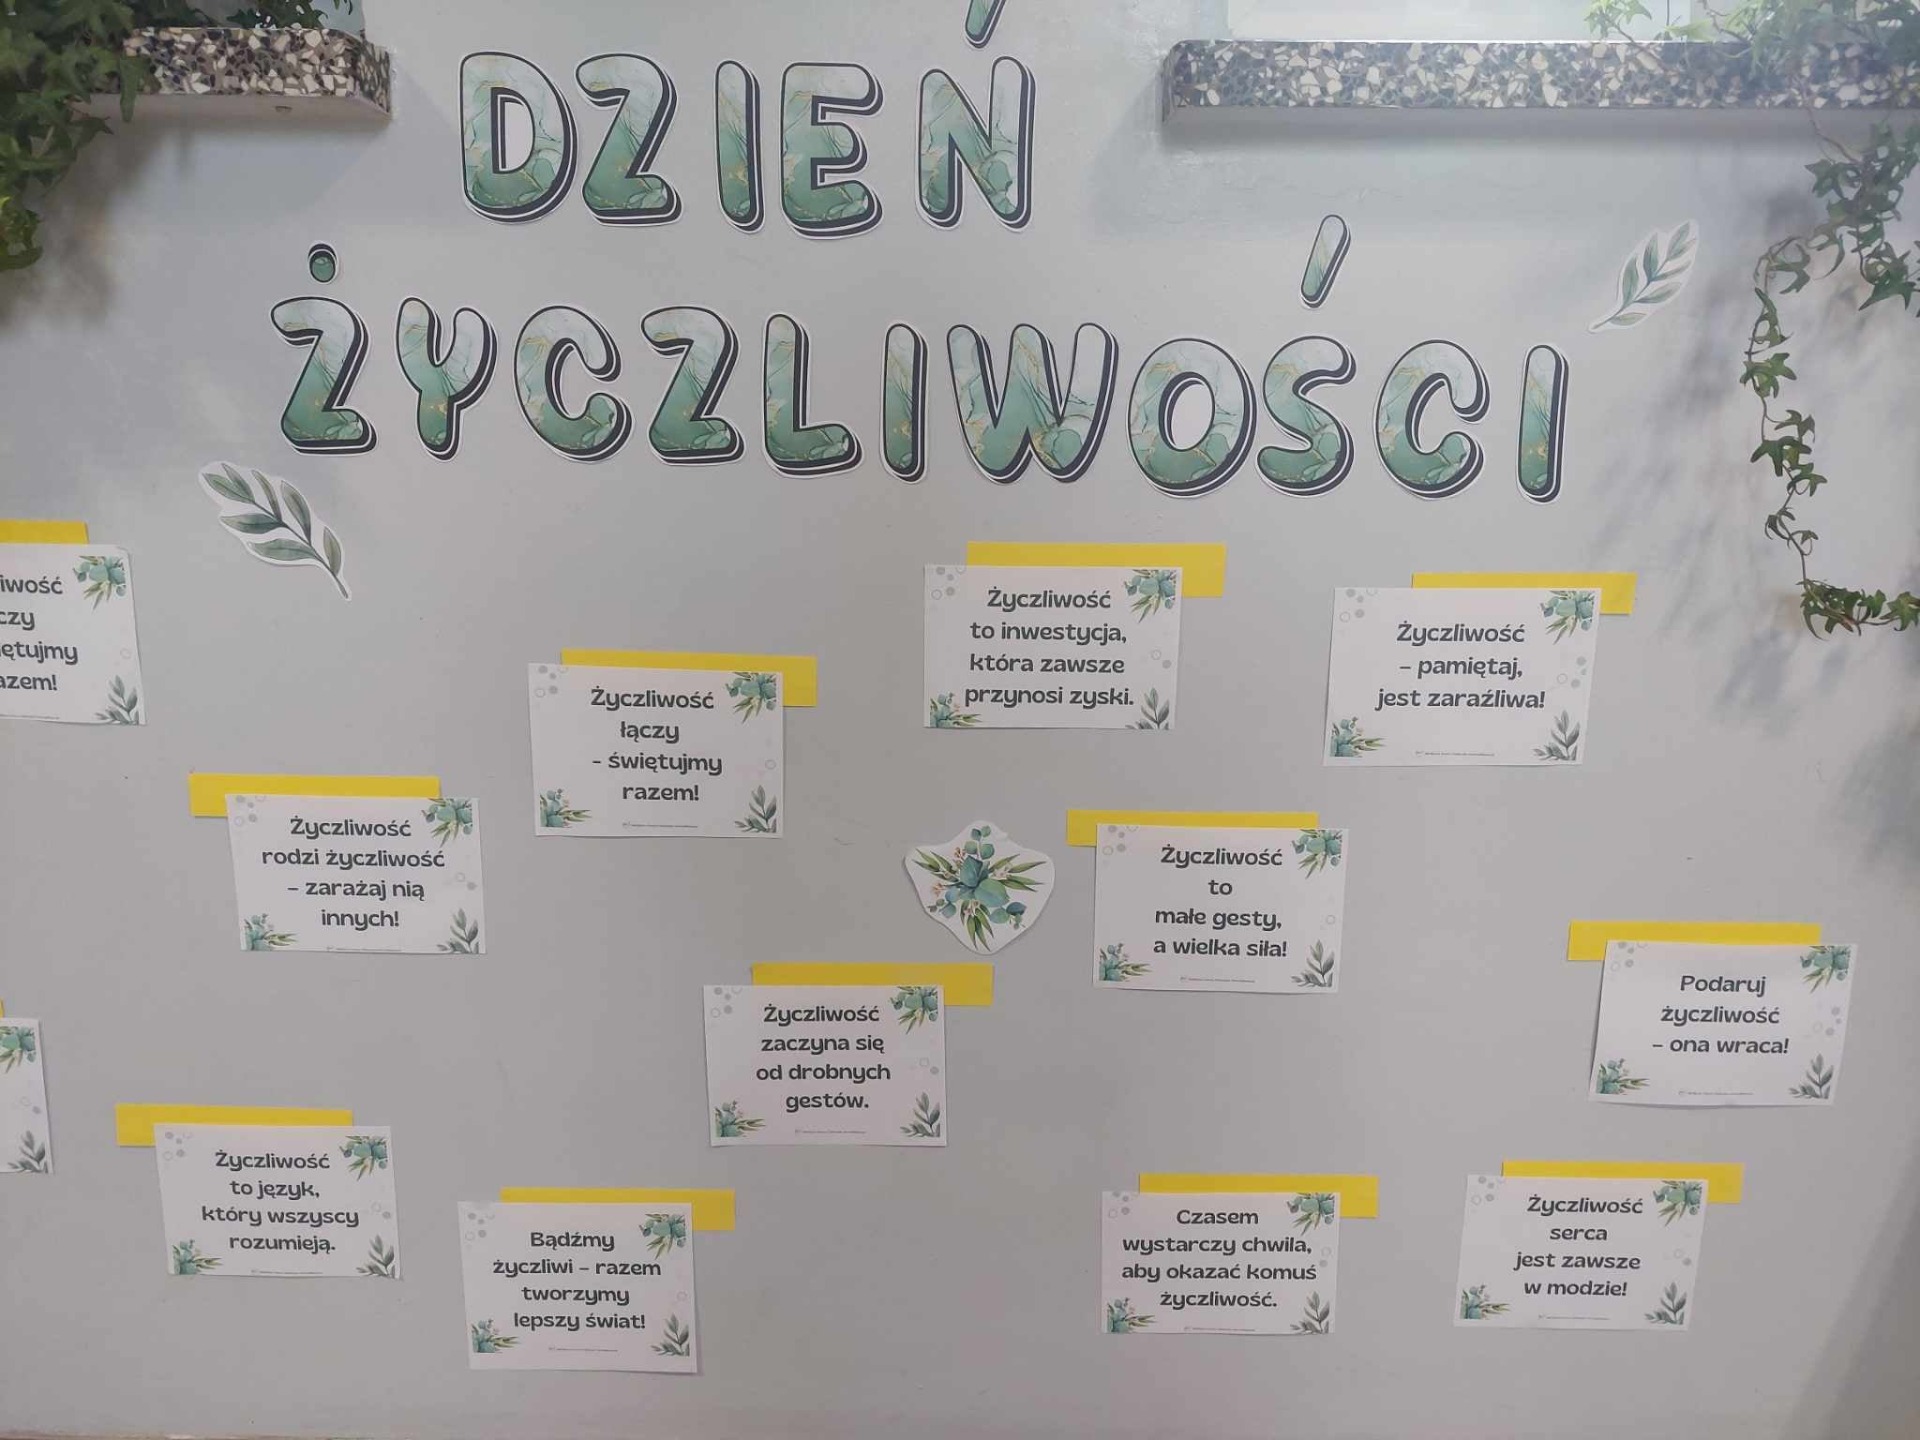 DZIEŃ
ŻYCZLIWOŚCI
Życzliwość
to inwestycja,
która zawsze
przynosi zyski.
Życzliwość
– pamiętaj,
jest zaraźliwa!
razem!
Życzliwość
łączy
- świętujmy
razem!
Życzliwość
rodzi życzliwość
– zarażaj nią
innych!
Życzliwość
to
małe gesty,
a wielka siła!
Podaruj
życzliwość
– ona wraca!
Życzliwość
zaczyna się
od drobnych
gestów.
Życzliwość
to język,
który wszyscy
rozumieją.
Bądźmy
życzliwi – razem
tworzymy
lepszy świat!
Czasem
wystarczy chwila,
aby okazać komuś
życzliwość.
Życzliwość
serca
jest zawsze
w modzie!